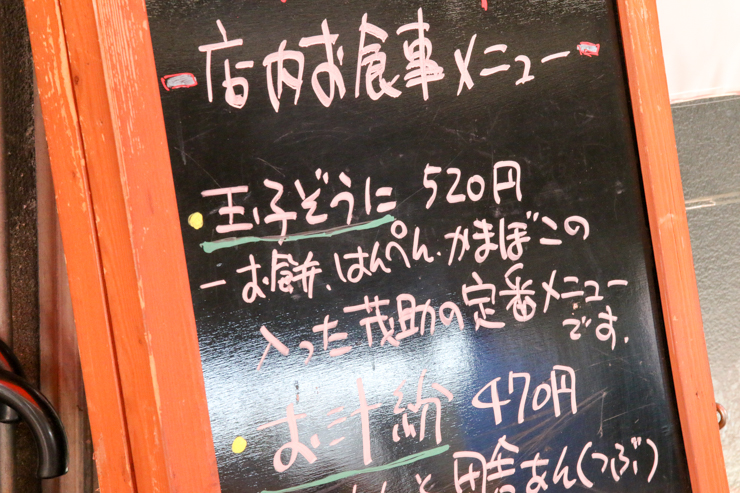 店内お食事メニュー
玉子ぞうに 520円
ーお餅、はんぺん、かまぼこの
入った茂助の定番メニュー
です。
お汁粉 470円
と 田舎あん(つぶ)